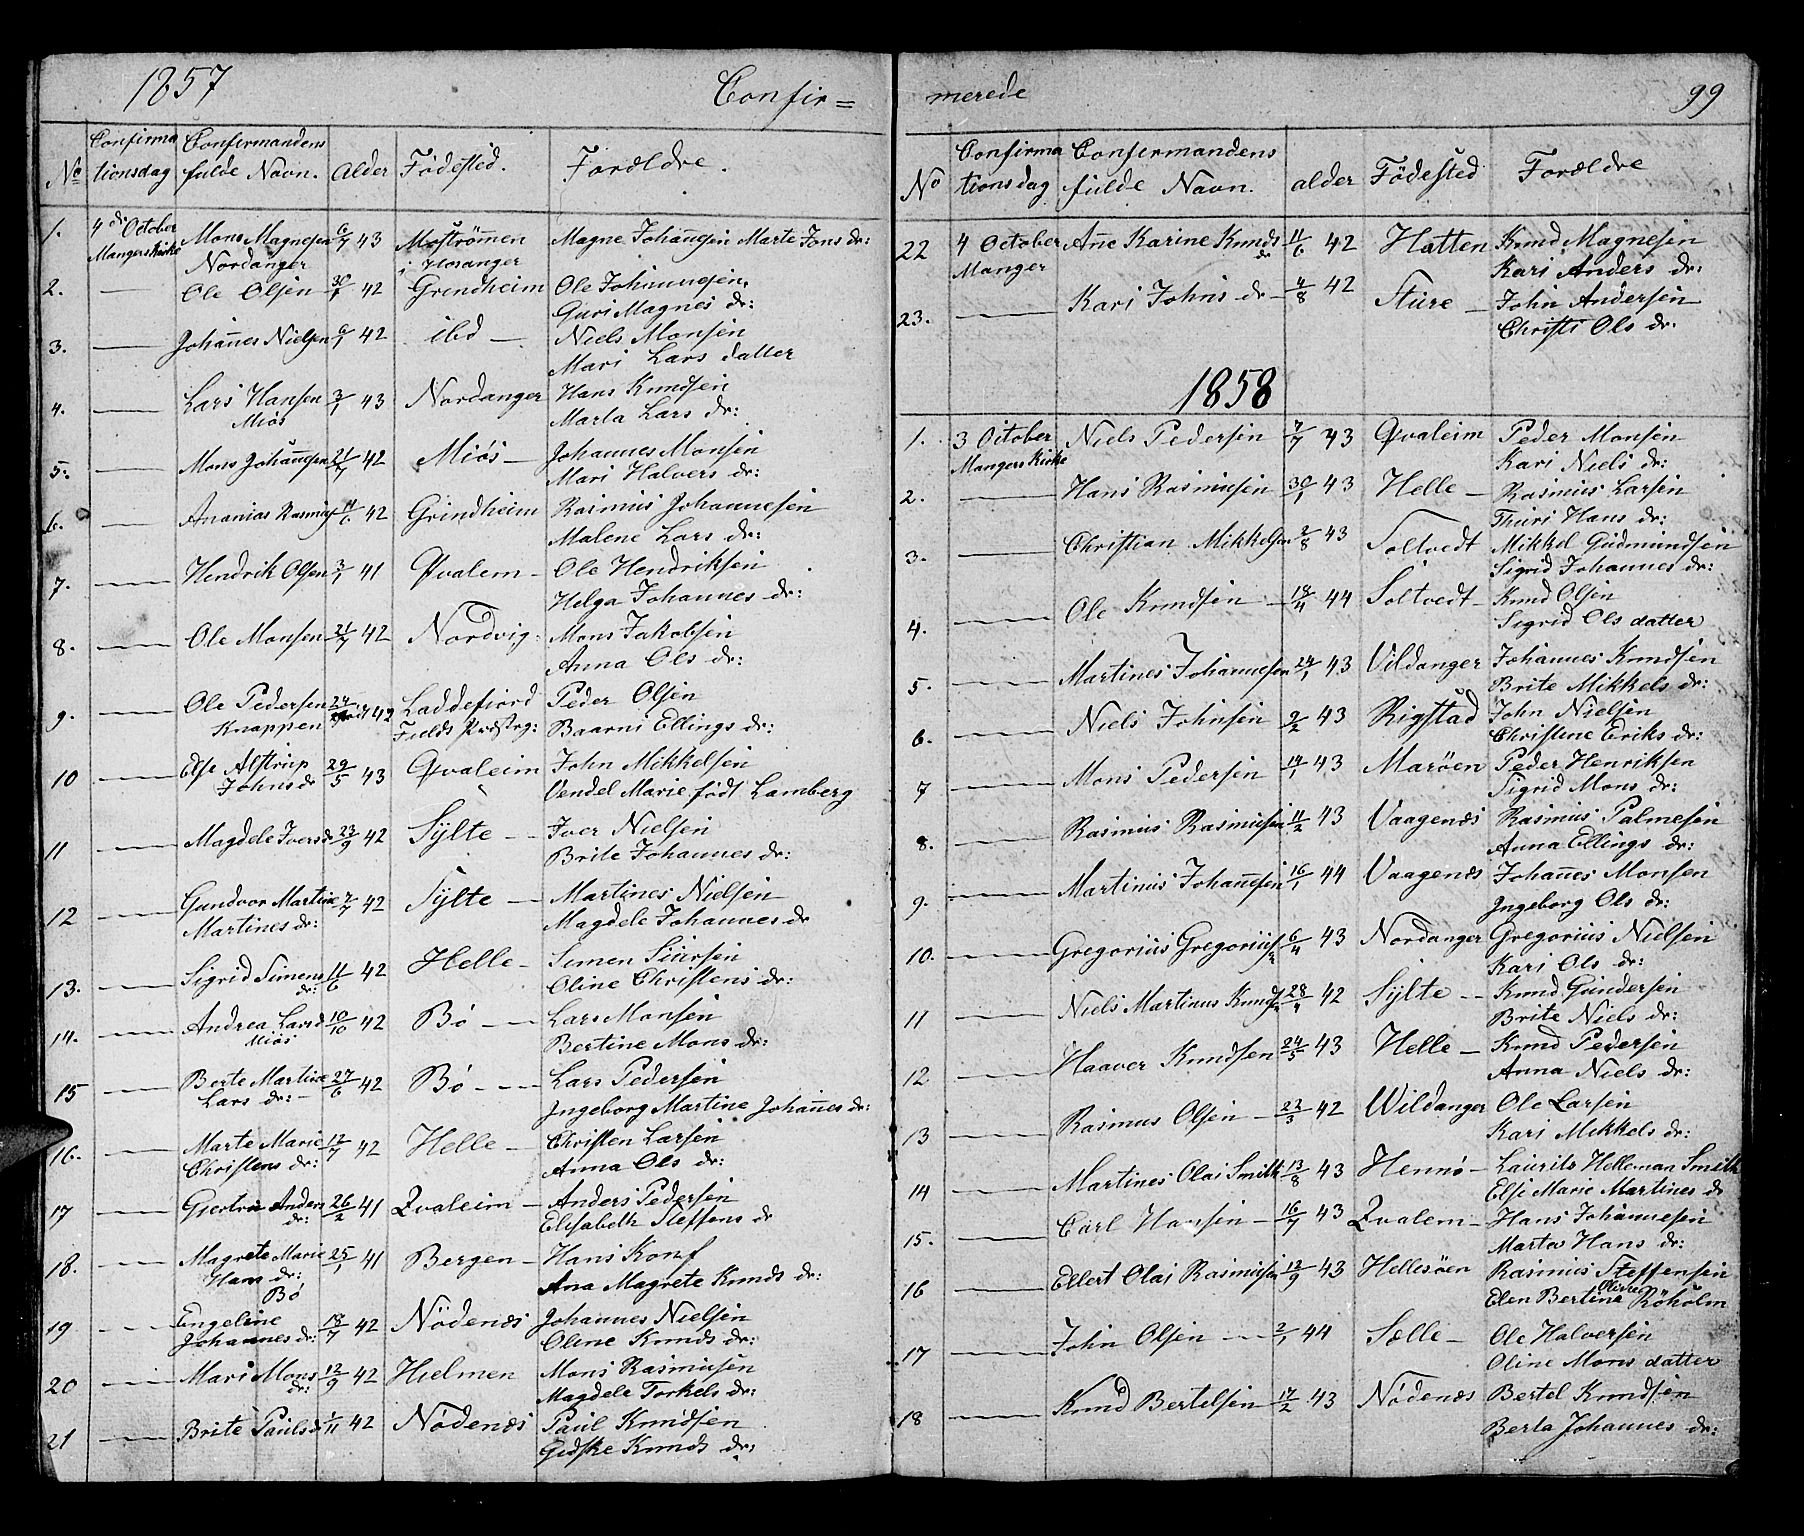 1857 Confir=
No Confirma Confermandens
tionsdag fulde Navn. Alder Fødested. Forældre.
1. 4de October Mons Magnesen 6/7 43 Moströmen Magne Johañesen Marte Jons dr:
Mangers Kirke Nordanger i Hosanger
2. — Ole Olsen 30/1 42 Grendheim Ole Johannesen,
Guri Magnes dr:
3. — Johañes Nielsen 42 ibd — Niels Monsen
Mari Lars datter
4. — Lars Hansen 3/1 43 Nordanger Hans Knudsen
Miøs Marta Lars dr:
5. — Mons Johañesen 21/7 42 Miøs — Johannes Monsen
Mari Halvers dr:
6. — Ananias Rasmus 11/6 42 Grindheim Rasmus Johannesen
Malene Lars dr:
7. — Hendrik Olsen 3/1 41 Qvalem — Ole Hendriksen
Helga Johannes dr:
8. — Ole Monsen 21/7 42 Nordvig: Mons Jakobsen
Anna Ols dr:
9. — Ole Pedersen 24 42 Laddefiord Peder Olsen
Knappen Fields Baarni Ellings dr:
10 — Else Alstrup 29/5 43 Qvaleim John Mikkelsen
Johns dr Vendel Marie født Lamberg
11 — Magdele Ivers d 23/9 42 Sylte — Iver Nielsen
Brite Johannes dr:
12 — Gundvor Martine 7/7 42 Sylte — Martines Nielsen
Martines dr: Magdele Johannes dr
13. — Sigrid Simens 11/6 42 Helle — Simen Siversen
dr: Oline Christens dr:
14. — Andrea Lars d 10/10 42 Bö — Lars Monsen
Miøs Bertine Mons dr:
15 — Berte Martine 27/6 42 Bö — Lars Pedersen
Lars dr: — Ingeborg Martine Johañes dr:
16. — Marte Marie 12/7 42 Helle — Christen Larsen
Christens dr: Anna Ols dr:
17 — Giertru Anders 26/2 41 Qvaleim — Anders Pedersen
dr: Elisabeth Steffens dr
18. — Magrete Marie 25/1 41 Bergen — Hans Konf
Hans dr: Ana Magrete Knuds dr:
Bö
19 — Engeline 18/7 42 Nödenæs Johannes Nielsen
Johannes dr: Oline Knuds dr:
20 — Mari Mons 12/9 42 Hielmen Mons Rasmusen
dr: Magdele Torkels dr:
21 — Brite Pauls d 1/11 42 Nödenæs Paul Knudsen
Gidske Knuds dr:
merede 99
Confirma Confermandens
No tionsdag fulde Navn. alder Fødested Forældre
22 4 October Añe Karine Knuds 11/6 42 Hatten Knud Magnesen
Manger dr Kari Anders dr:
23. — Kari Johns dr — 4/8 42 Sture — John Andersen
Christi Ols dr.
1858
1. 3 October Niels Pedersen 7/7 43 Qvaleim Peder Monsen
Mangers Kirke Kari Niels dr:
2. — Hans Rasmusen 30/1 43 Helle — Rasmus Larsen
Thuri Hans dr:
3. — Christian Mikkelsen 2/8 43 Soltvedt Mikkel Gudmundsen
Sigrid Johannes dr:
4. — Ole Knudsen — 18/4 44 Soltvedt — Knud Olsen
Sigrid Ols datter
5. — Martines Johannesen 24/1 43 Vildanger Johannes Knudsen
Brite Mikkels dr:
6. — Niels Johnsen 9/2 43 Rigstad John Nielsen
Christine Eriks dr:
7 — Mons Pedersen 14/1 43 Marøen Peder Henriksen
Sigrid Mons dr:
8. — Rasmus Rasmusen 11/2 43 Vaagenæs Rasmus Palmesen
Anna Ellings dr:
9. — Martinus Johañesen 16/1 44 Vaagenæs Johañes Monsen
Ingeborg Ols dr:
10. — Gregorius Gregorius 6/4 43 Nordanger Gregorius Nielsen
Kari Ols dr:
11 — Niels Martinus Knuds 28 42 Sylte — Knud Gundersen
Brite Niels dr:
12 — Haaver Knudsen 24/5 43 Helle — Knud Pedersen
Anna Niels dr:
13 — Rasmus Olsen — 23/3 42 Wildanger Ole Larsen
Kari Mekkels dr:
14 — Martines Olai Smith 13/8 43 Hennö — Laurits Helleman Smith
Else Marie Martines dr
15. — Carl Hansen — 16/7 43 Qvalem — Hans Johannesen
Marta Hans dr:
16 — Ellert Olai Rasmusen 12/9 43 Hellesöen Rasmus Steffensen
Elen Bertina Röholm
17 — John Olsen — 2/1 44 Sælle — Ole Halversen
Oline Mons datter
18 — Knud Bertelsen 17/2 43 Nødenæs Bertel Knudsen
Berta Johannes dr: